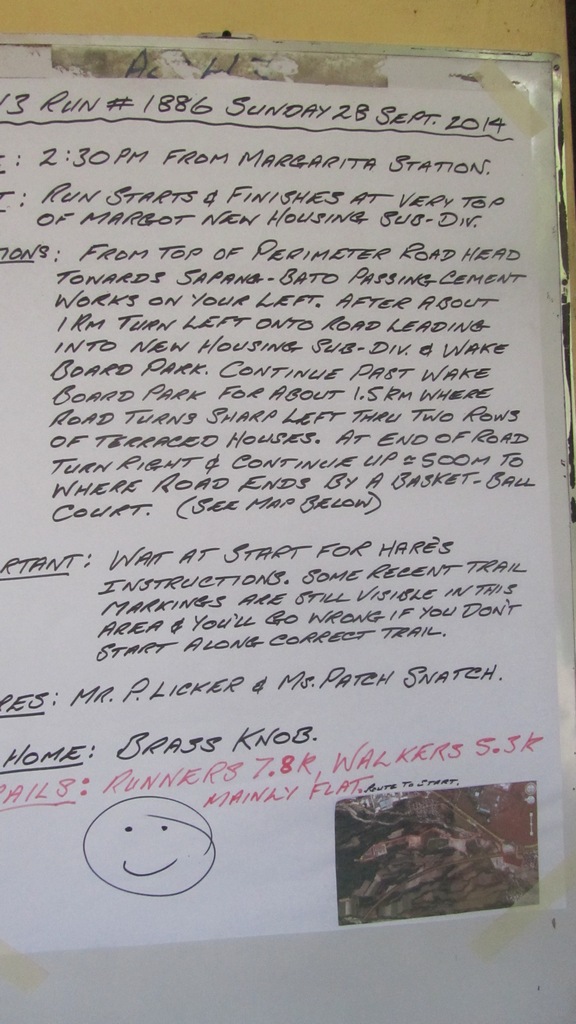 13 RUN # 1886 SUNDAY 28 SEPT. 2014
: 2:30PM FROM MARGARITA STATION.
: RUN STARTS & FINISHES AT VERY TOP
OF MARGOT NEW HOUSING SUB-DIV.
IONS: FROM TOP OF PERIMETER ROAD HEAD
TOWARDS SAPANG-BATO PASSING CEMENT
WORKS ON YOUR LEFT. AFTER ABOUT
1KM TURN LEFT ONTO ROAD LEADING
INTO NEW HOUSING SUB-DIV. & WAKE
BOARD PARK. CONTINUE PAST WAKE
BOARD PARK FOR ABOUT 1.5KM WHERE
ROAD TURNS SHARP LEFT THRU TWO ROWS
OF TERRACED HOUSES. AT END OF ROAD
TURN RIGHT & CONTINUE UP ≃ 500M TO
WHERE ROAD ENDS BY A BASKET-BALL
COURT. (SEE MAP BELOW)
RTANT: WAIT AT START FOR HARE'S
INSTRUCTIONS. SOME RECENT TRAIL
MARKINGS ARE STILL VISIBLE IN THIS
AREA & YOU'LL GO WRONG IF YOU DON'T
START ALONG CORRECT TRAIL.
RES: MR. P. LICKER & MS. PATCH SNATCH.
HOME: BRASS KNOB.
AILS: RUNNERS 7.8K, WALKERS 5.3K
MAINLY FLAT.
ROUTE TO START.